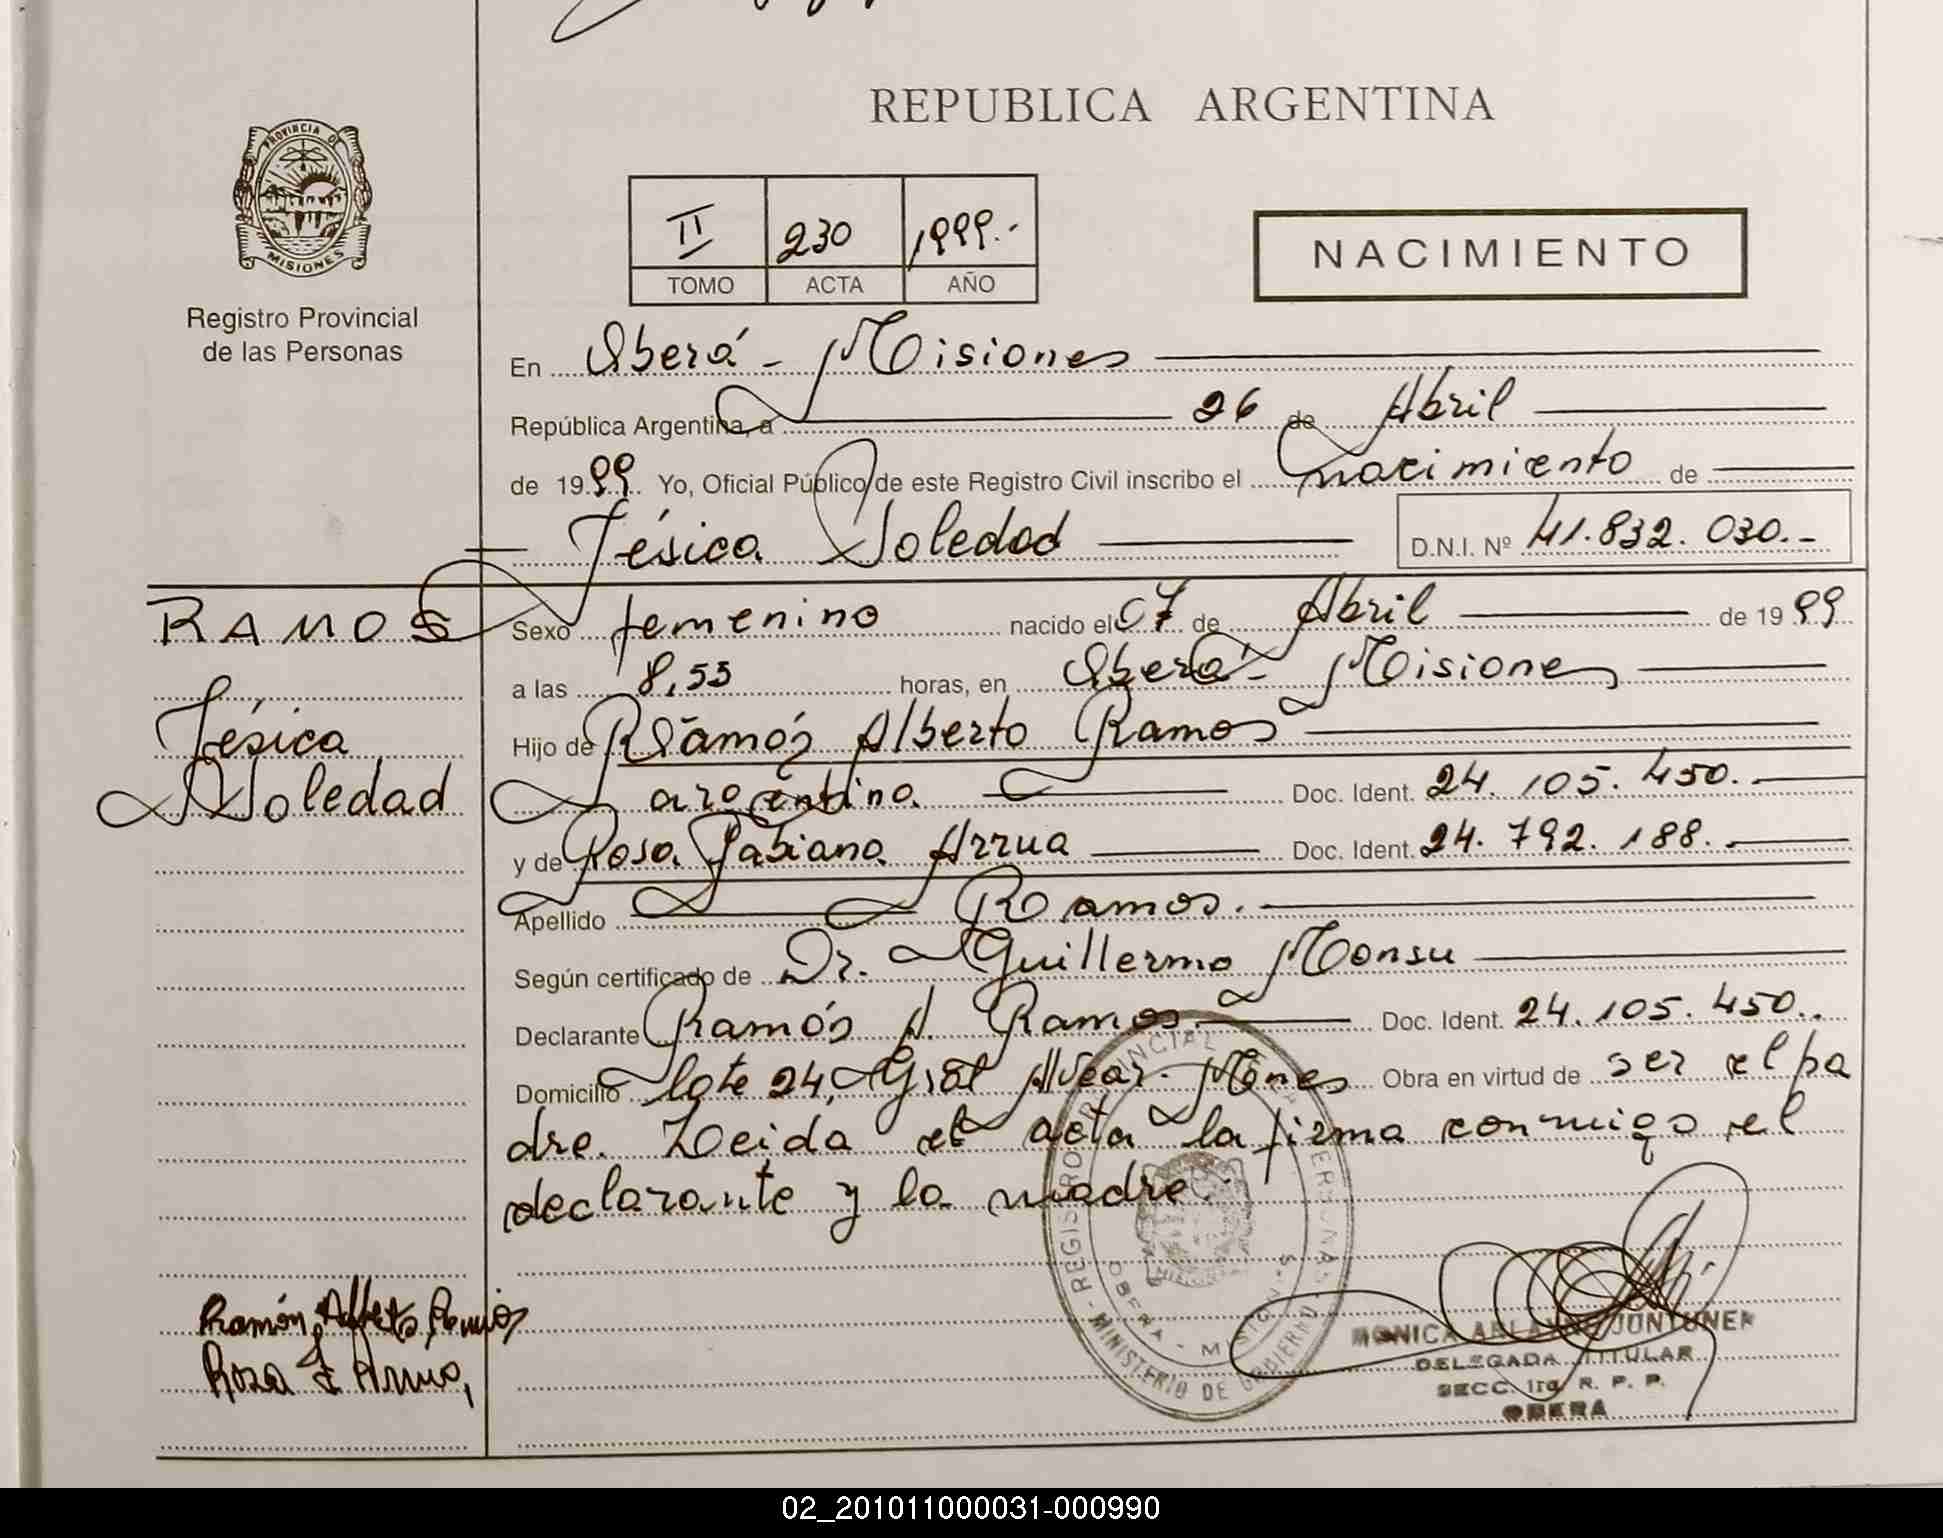 REPUBLICA ARGENTINA
PROVINCIA DE
MISIONES
Registro Provincial
de las Personas
II 230 1999.-
TOMO ACTA AÑO
NACIMIENTO
En Oberá - Misiones
República Argentina, a 26 de Abril
de 1999 Yo, Oficial Público de este Registro Civil inscribo el nacimiento de
Jésica Soledad D.N.I. Nº 41.832.030.-
RAMOS
Jésica
Soledad
Sexo femenino nacido el 07 de Abril de 1999
a las 8,55 horas, en Oberá - Misiones
Hijo de Ramón Alberto Ramos
argentino Doc. Ident. 24.105.450.
y de Rosa Fabiana Arrua Doc. Ident. 24.792.188.
Apellido Ramos.
Según certificado de Dr. Guillermo Monsu
Declarante Ramón A. Ramos Doc. Ident. 24.105.450..
Domicilio lote 24, Gral Alvear - Mnes Obra en virtud de ser el pa
dre. Leida el acta la firma conmigo el
declarante y la madre.
Ramón Alberto Ramos
Rosa F Arrua,
REGISTRO PROVINCIAL DE LAS PERSONAS
OBERA - MISIONES
MINISTERIO DE GOBIERNO
MONICA JUNTUNEN
DELEGADA TITULAR
SECC. 1ra R. P. P.
OBERA
02_201011000031-000990